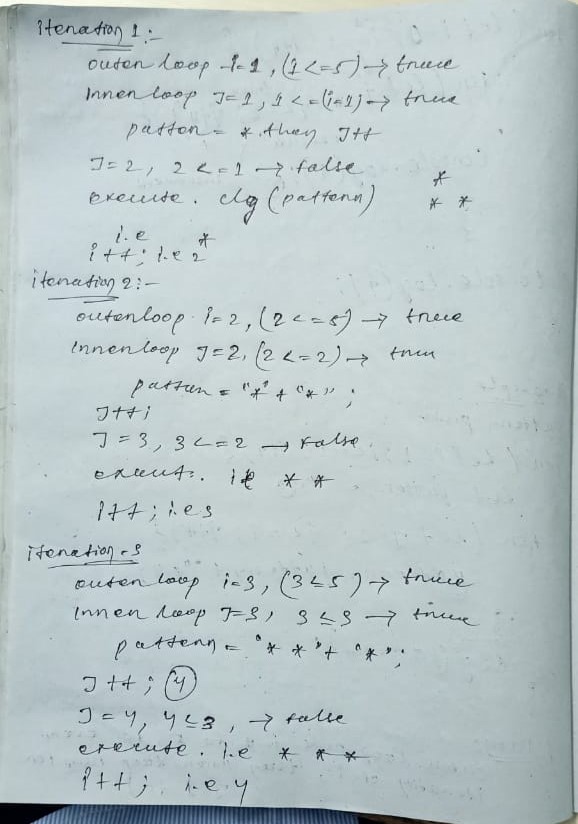 iteration 1:-
outer loop i=1, (1<=5) → true
Inner loop J=1, 1<=(i=1) → true
pattern = *. then J++
J=2, 2<=1 → false
*
execute. clg(pattern)
* *
i.e *
i++; i.e 2
iteration 2:-
outer loop i=2, (2<=5) → true
Inner loop J=2, (2<=2) → true
pattern = "*" + "*";
J++;
J=3, 3<=2 → False
execut. ie * *
i++; i.e 3
iteration-3
outer loop i=3, (3≤5) → true
Inner loop J=3, 3≤3 → true
pattern = "* *" + "*";
J++; 4
J=4, 4≤3, → false
execute. i.e * * *
i++; i.e. 4